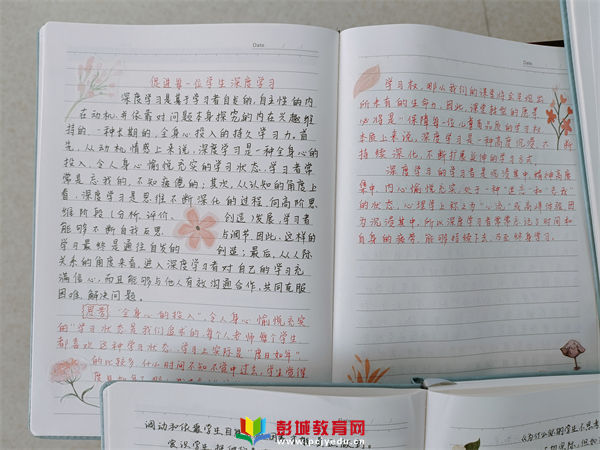 Date
促进每一位学生深度学习
深度学习是基于学习者自发的,自主性的内
在动机,并依靠对问题本身探究的内在兴趣维
持的,一种长期的,全身心投入的持久学习力,首
先,从动机情感上来说,深度学习是一种全身心的
投入,令人身心愉悦充实的学习状态,学习者常
常是忘我的,不知疲倦的;其次,从认知的角度上
看,深度学习是思维不断深化的过程,向高阶思
维阶段(分析、评价、创造)发展,学习者
能够不断自我反思与调节,因此,这样的
学习最终是通往自发的创造;最后,从人际
关系的角度来看,进入深度学习者对自己的学习充
满信心,而且能够与他人有效沟通合作,共同克服
困难,解决问题。
思考 "全身心的投入",令人身心愉悦充实
的"学习状态是我们追求的,每个人老师每个学生
都喜欢这种学习状态,学习上实际是"度日如年"
的比较多,什么时间不知不觉中过去,学生觉得
Date
学习权,那么我们的课堂将会呈现出
所未有的生命力,因此,课堂转型的愿景
必将是"保障每一位儿童高品质的学习权
本质上来说,深度学习是一种高度沉浸、不断
持续深化,不断扩展延伸的学习方式。
深度学习的学习者是沉浸其中,精神高度
集中,内心愉悦充实,处于一种"迷恋"和"忘我"
的状态,心理学上称之为"心流"或高峰体验,因
为沉浸其中,所以深度学习者常常忘记了时间和
自身的疲劳,能够持续下去,乃至终身学习。
调动和依靠学生自
彭城教育网
www.pcjyedu.cn